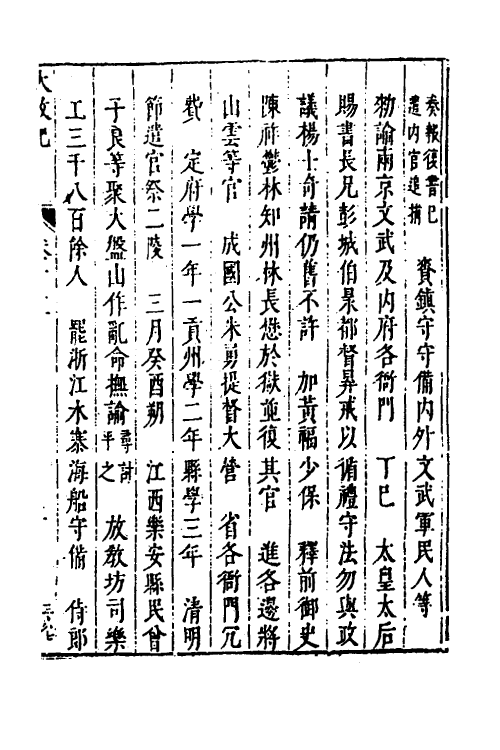 奏報後書已
遣內官追捕　賚鎮守守備內外文武軍民人等
勑諭南京文武及內府各衙門　丁巳　太皇太后
賜書長兄彭城伯杲都督昇戒以循禮守法勿與政
議楊士奇請仍舊不許　加黃福少保　釋前御史
陳祚鬱林知州林長懋於獄並復其官　進各邊將
山雲等官　成國公朱勇提督大營　省各衙門冗
費　定府學一年一貢州學二年縣學三年　清明
節遣官祭二陵　三月癸酉朔　江西樂安縣民曾
子良等聚大盤山作亂命撫諭尋討平之　放教坊司樂
工三千八百餘人　罷浙江水寨海船守備　侍郎
大政記